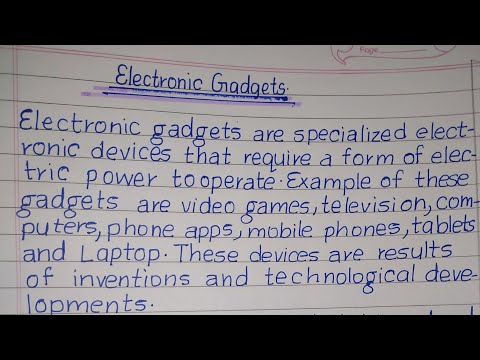 Page
Electronic Gadgets.
Electronic gadgets are specialized elect-
ronic devices that require a form of elec-
tric power to operate. Example of these
gadgets are video games, television, com-
puters, phone apps, mobile phones, tablets
and Laptop. These devices are results
of inventions and technological deve-
lopments.